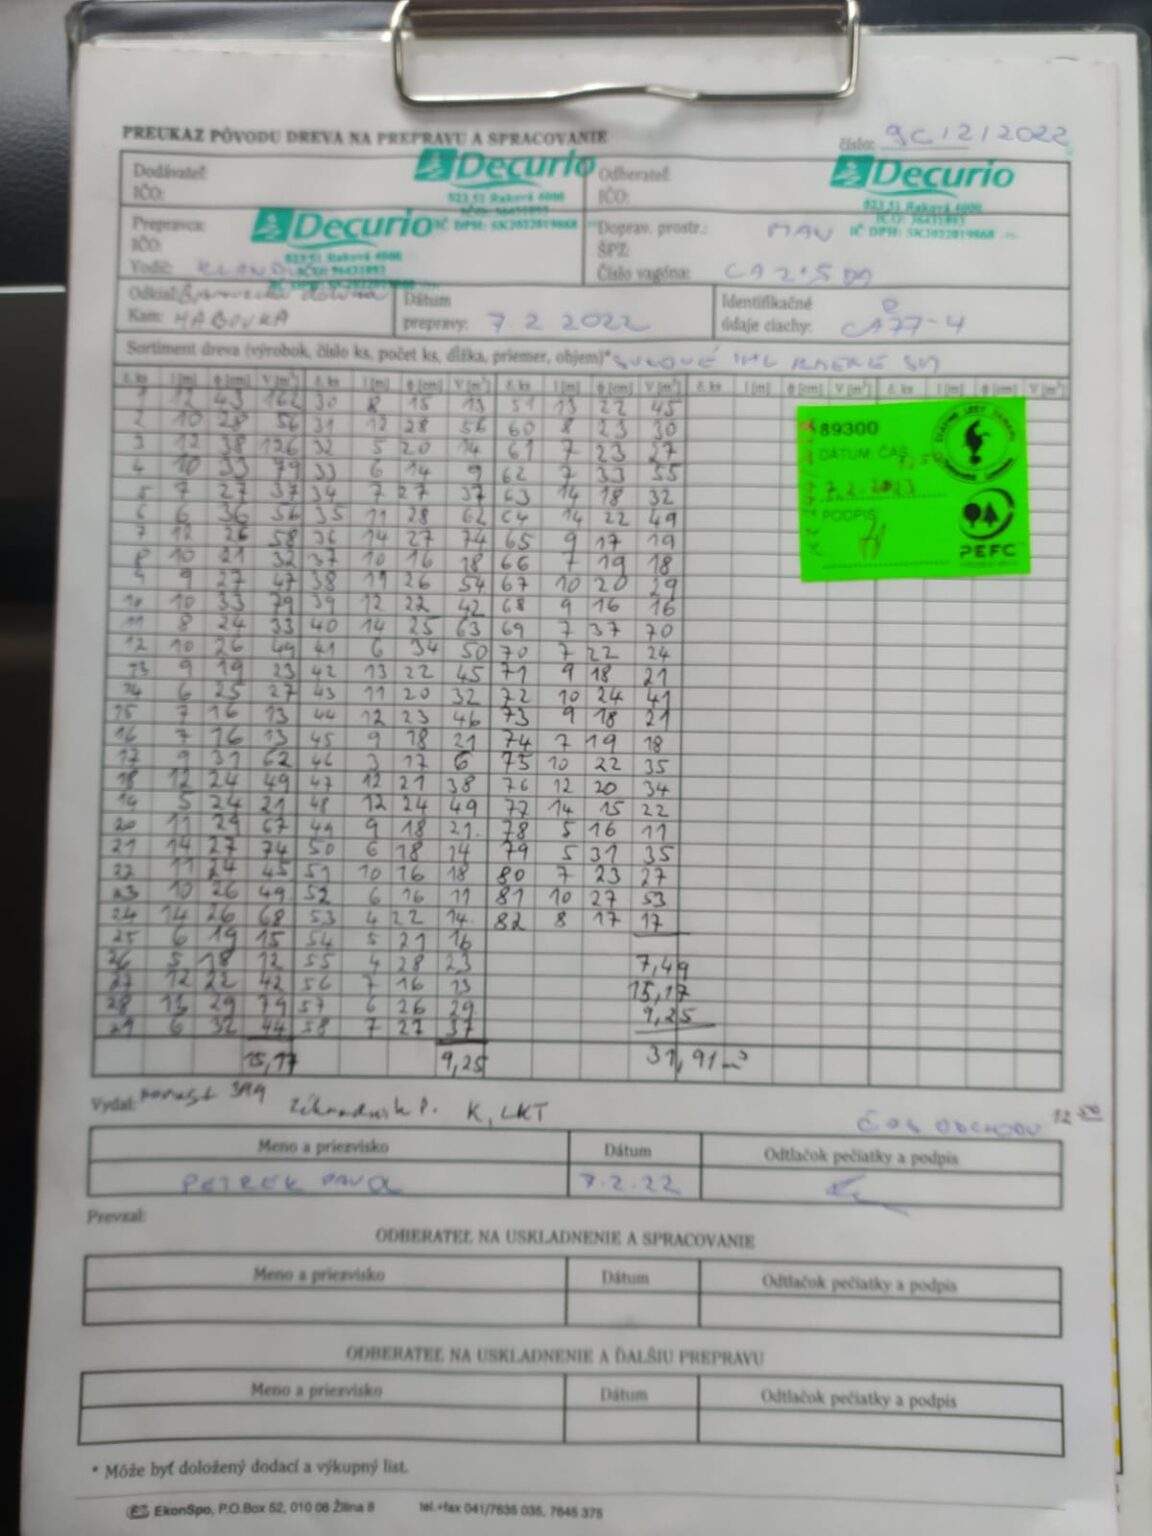 PREUKAZ PÔVODU DREVA NA PREPRAVU A SPRACOVANIE
číslo: 9C/2/2022
Dodávateľ:
IČO:
Decurio
023 51 Raková 4000
IČO: 36431893
IČ DPH: SK2022819868
Odberateľ:
IČO:
Decurio
023 51 Raková 4000
IČO: 36431893
IČ DPH: SK2022819868
Prepravca:
IČO:
Vodič:
Decurio
023 51 Raková 4000
IČO: 36431893
Doprav. prostr.: MAN
ŠPZ:
Číslo vagóna:
Odkiaľ: dolina
Kam: HABOVKA
Dátum
prepravy: 7 2 2022
Identifikačné
údaje ciachy: CA77-4
Sortiment dreva (výrobok, číslo ks, počet ks, dĺžka, priemer, objem)*
č. ks l [m] ϕ [cm] V [m³] č. ks l [m] ϕ [cm] V [m³] č. ks l [m] ϕ [cm] V [m³] č. ks l [m] ϕ [cm] V [m³] č. ks l [m] ϕ [cm] V [m³]
1 12 43 162 30 8 15 13 59 13 22 45
2 10 28 56 31 12 28 56 60 8 23 30
3 12 38 126 32 5 20 14 61 7 23 27
4 10 33 79 33 6 14 9 62 7 33 55
5 7 27 37 34 7 27 37 63 14 18 32
6 6 36 56 35 11 28 62 64 14 22 49
7 12 26 58 36 14 27 74 65 9 17 19
8 10 21 32 37 10 16 18 66 7 19 18
9 9 27 47 38 11 26 54 67 10 20 29
10 10 33 79 39 12 22 42 68 9 16 16
11 8 24 33 40 14 25 63 69 7 37 70
12 10 26 49 41 6 34 50 70 7 22 24
13 9 19 23 42 13 22 45 71 9 18 21
14 6 25 27 43 11 20 32 72 10 24 41
15 7 16 13 44 12 23 46 73 9 18 21
16 7 16 13 45 9 18 21 74 7 19 18
17 9 31 62 46 3 17 6 75 10 22 35
18 12 24 49 47 12 21 38 76 12 20 34
19 5 24 21 48 12 24 49 77 14 15 22
20 11 29 67 49 9 18 21 78 5 16 11
21 14 27 74 50 6 18 14 79 5 31 35
22 11 24 45 51 10 16 18 80 7 23 27
23 10 26 49 52 6 16 11 81 10 27 53
24 14 26 68 53 4 22 14 82 8 17 17
25 6 19 15 54 5 21 16
26 5 18 12 55 4 28 23 7,49
27 12 22 42 56 7 16 13 15,17
28 13 29 79 57 6 26 29 9,25
29 6 32 44 58 7 27 37
15,17 9,25 31,91 m³
89300
DÁTUM, ČAS
PODPIS
PEFC
Vydal:
K, LKT
ČAS ODCHODU 12 00
Meno a priezvisko Dátum Odtlačok pečiatky a podpis
PETREK PAVOL 7.2.22
Prevzal:
ODBERATEĽ NA USKLADNENIE A SPRACOVANIE
Meno a priezvisko Dátum Odtlačok pečiatky a podpis
ODBERATEĽ NA USKLADNENIE A ĎALŠIU PREPRAVU
Meno a priezvisko Dátum Odtlačok pečiatky a podpis
* Môže byť doložený dodací a výkupný list.
EkonSpo, P.O.Box 52, 010 08 Žilina 8 tel.+fax 041/7635 035, 7645 375